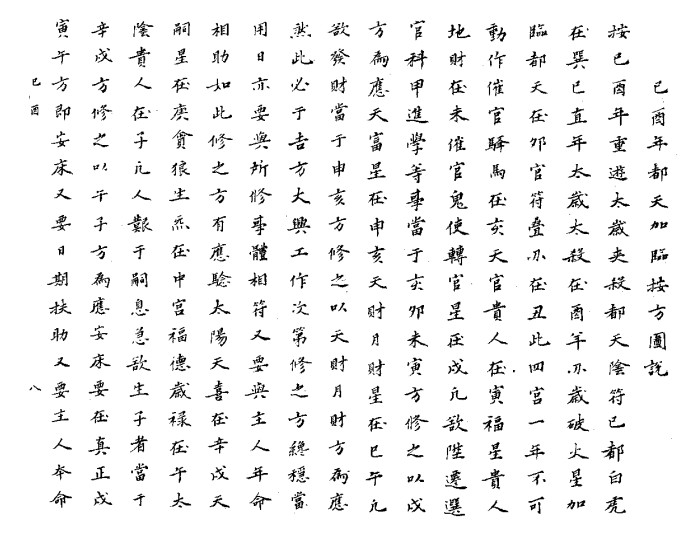 己酉年都天加臨按方圖説
按己酉年重遊太歲夹殺都天陰符己都白虎
在巽巳直年太歲太殺在酉年亦歲破火星加
臨都天在卯官符叠亦在丑此四宫一年不可
動作催官驛馬在亥天官貴人在寅福星貴人
地財在未催官鬼使轉官星在戌凢欲陞遷選
官科甲進學等事當于亥卯未寅方修之以戌
方為應天富星在申亥天財月財星在巳午凢
欲發財當于申亥方修之以天財月財方為應
然此必于吉方大興工作次第修之方緫穩當
用日亦要與所修事體相符又要與主人年命
相助如此修之方有應騐太陽天喜在辛戌天
嗣星在庚貪狼生炁在中宫福德歲禄在午太
陰貴人在子凢人艱于嗣息急欲生子者當于
辛戌方修之以午子方為應安床要在真正戌
寅午方即安床又要日期扶助又要主人本命
己酉
八